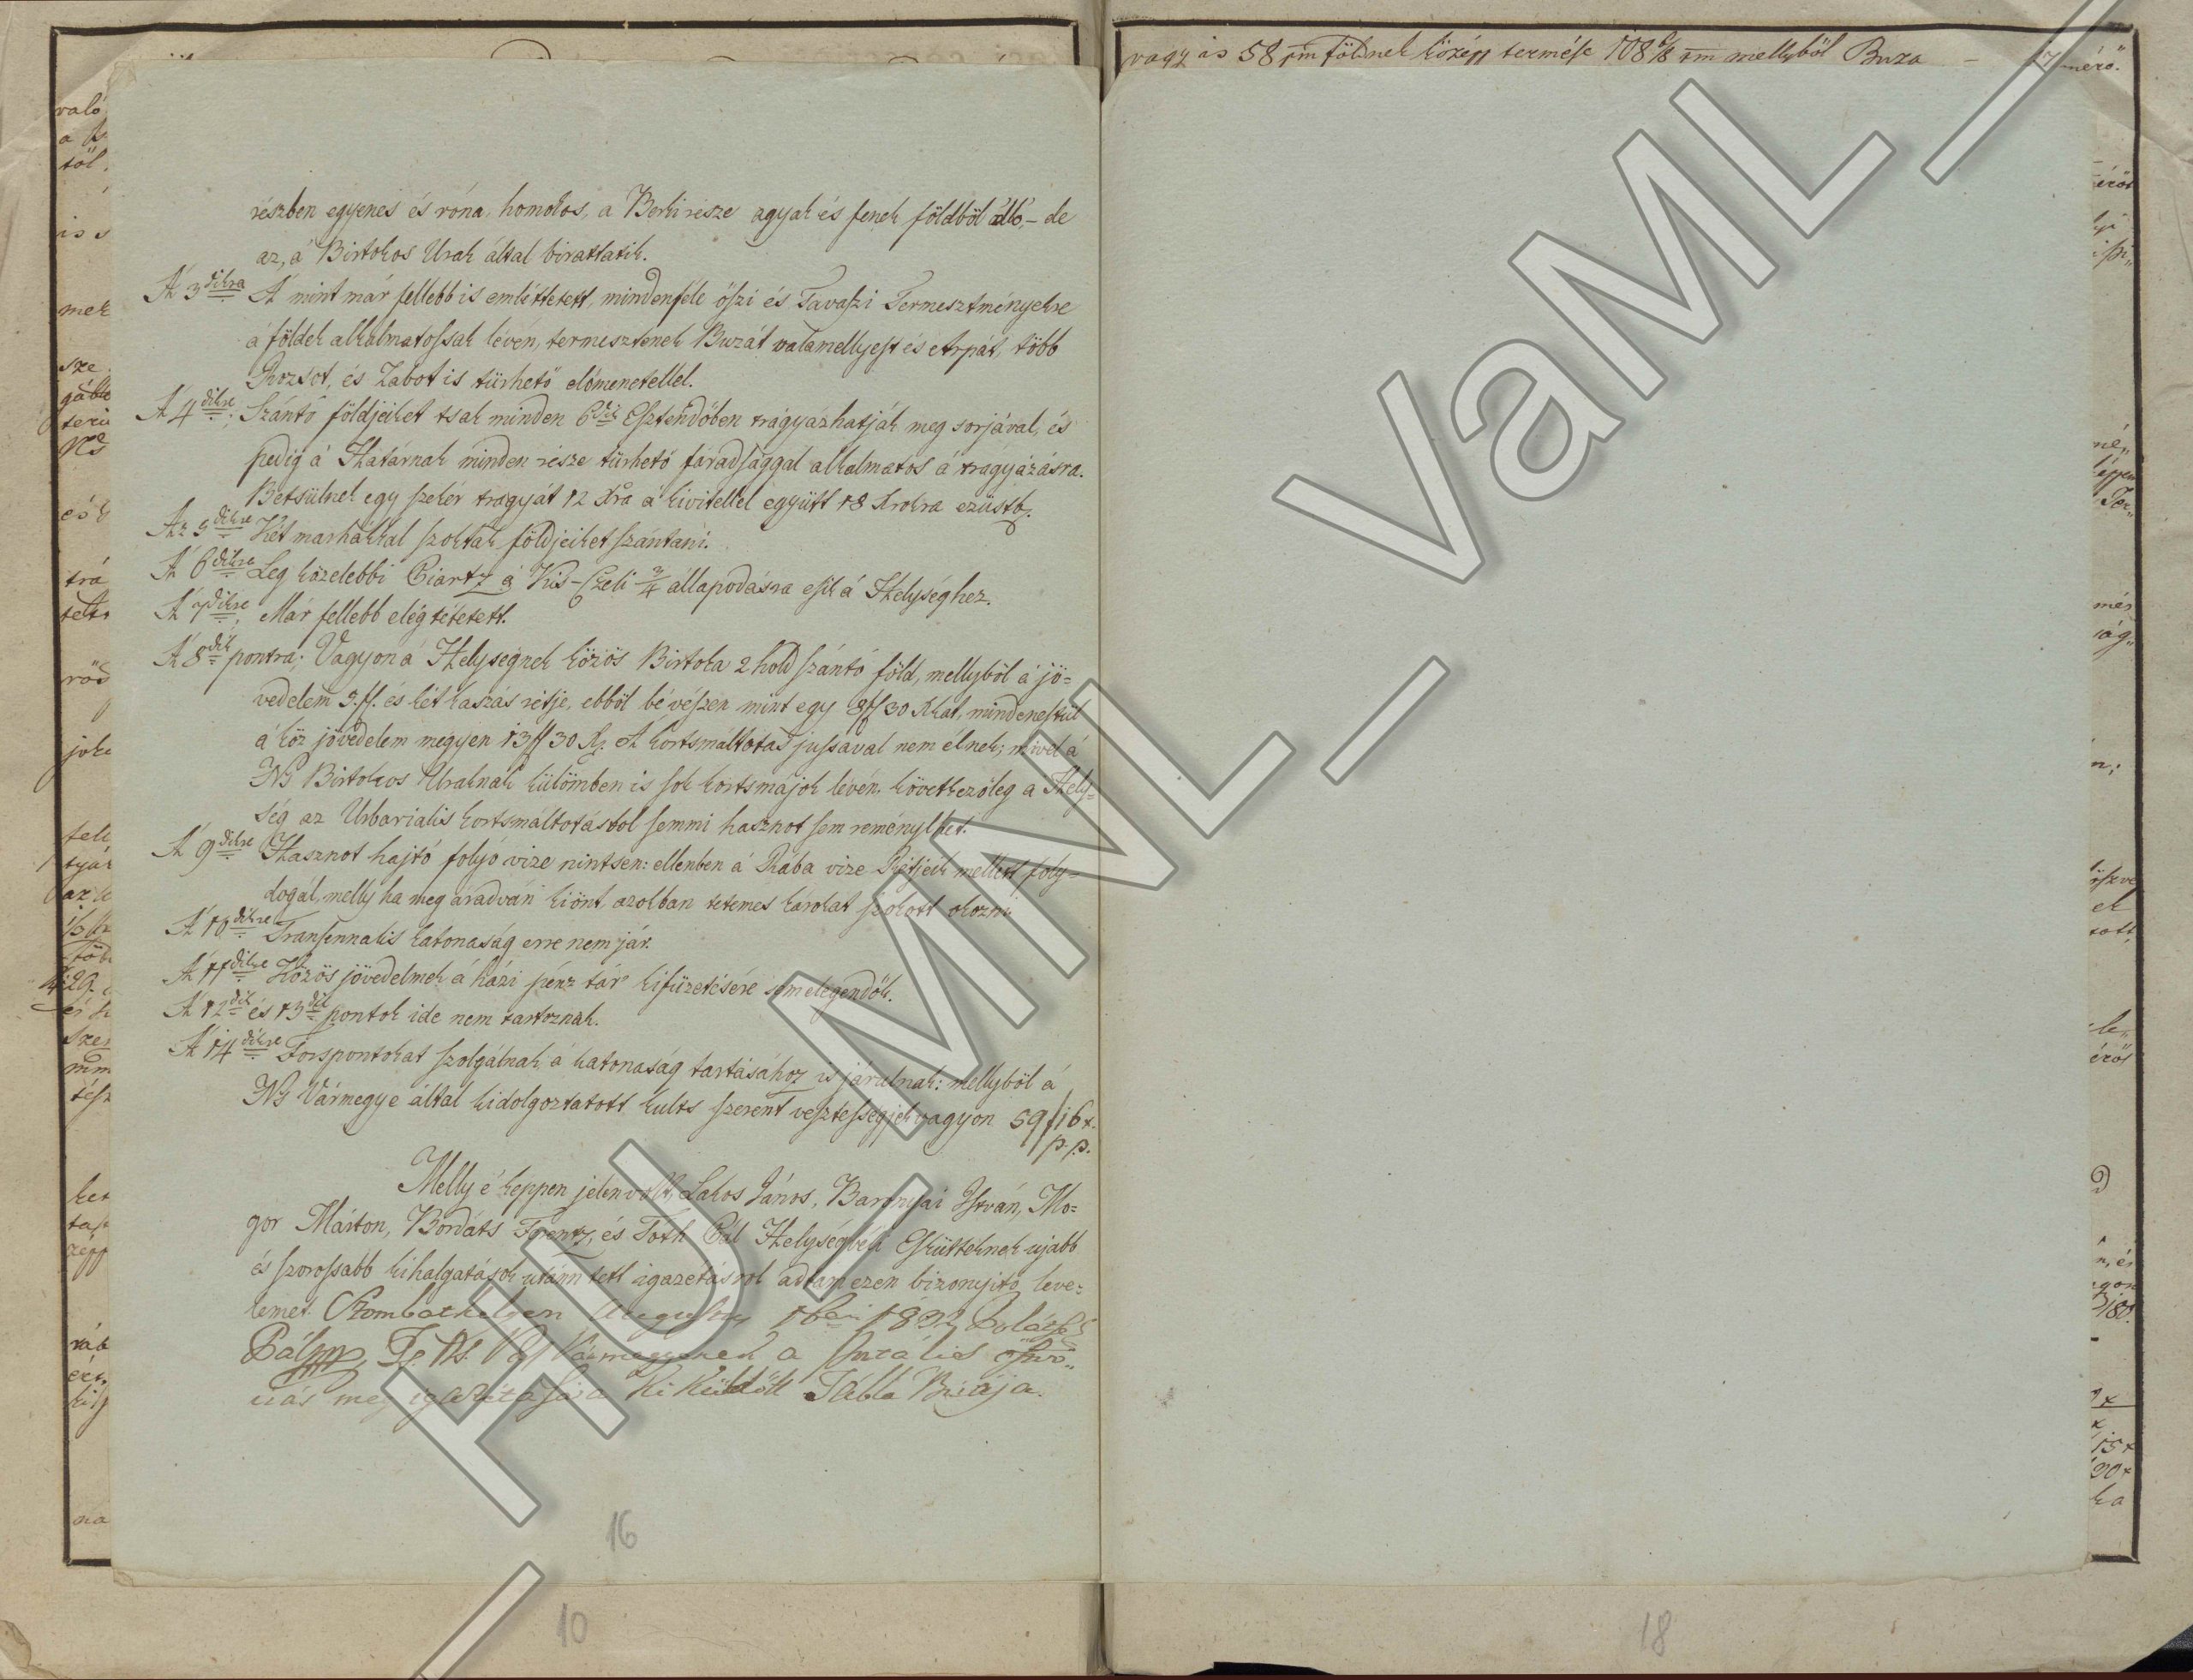 részben egyenes és róna, homokos, a Berki része agyak és fenek földböl álló, – de
az, á Birtokos Urak által birattatik.
Á 3dikra Á mint már fellebb is emléttetett, mindenféle öszi és Tavaszi Termesztményekre
á földek alkalmatossak lévén, termesztenek Buzát valamellyest és Árpát, több
Rozsot, és Zabot is türhető előmenetellel.
Á 4dikre; Szántó földjeiket tsak minden 6dik Esztendőben trágyazhatják meg sorjával, és
pedig á Határnak minden része türhető fáradsággal alkalmatos á tragyázásra.
Betsülnek egy szekér tragyát 12 Xra á kivitellel együtt 18 Xrokra ezüstb.
Az 5dikre Két marhákkal szokták földjeiket szántani.
Á 6dikre Leg közelebbi Piartz á Kis-Czeli 3/4 állapodásra esik á Helységhez.
Á 7dikre, Már fellebb elég tétetett.
Á 8dik pontra; Vagyon á Helységnek közös Birtoka 2 hold szántó föld, mellyböl á jö=
vedelem 5 f. és két kaszás rétje, ebböl bé vészen mint egy 8 f 30 Xkat, mindenestül
á köz jövedelem mégyen 13 f 30 X. A kortsmáltatás jussával nem élnek; mivel á
Ns Birtokos Uraknak külömben is sok kortsmájok lévén, következőleg á Hely=
ség az Urbarialis kortsmáltatásbol semmi hasznot sem reménylhet.
Á 9dikre Hasznot hajtó folyó vize nintsen: ellenben á Rába vize Rétjeik mellett foly=
dogál, melly ha meg áradván kiönt, azokban tetemes károkat szokott okozni.
Á 10dikre Transennalis katonaság erre nem jár.
Á 11dikre Közös jövedelmek á házi pénz tár kifüzetésere sem elegendők.
Á 12dik és 13dik pontok ide nem tartoznak.
Á 14dikre Forspontokat szolgálnak, á katonaság tartásához is járulnak: mellyböl á
Ns Vármegye által kidolgoztatott kults szerént vesztességjek vagyon 59 f 16 x.
p. p.
Melly é képpen jelen volt Lakos János, Baranyai István, Mo=
gor Márton, Bordáts Ferentz, és Tóth Pál Helységbéli Eskütteknek ujabb
és szorossabb kihalgatások utánn tett igazetásrol adtam ezen bizonyitó leve=
lemet. Szombathelyen
Pál mp. T. Ns. Vas Vármegyének a
meg igazítására Ki Küldött Tábla Birája.
16
10
vagy is 58 földnek közép termése 108 6/8 mellyböl Buza –
18